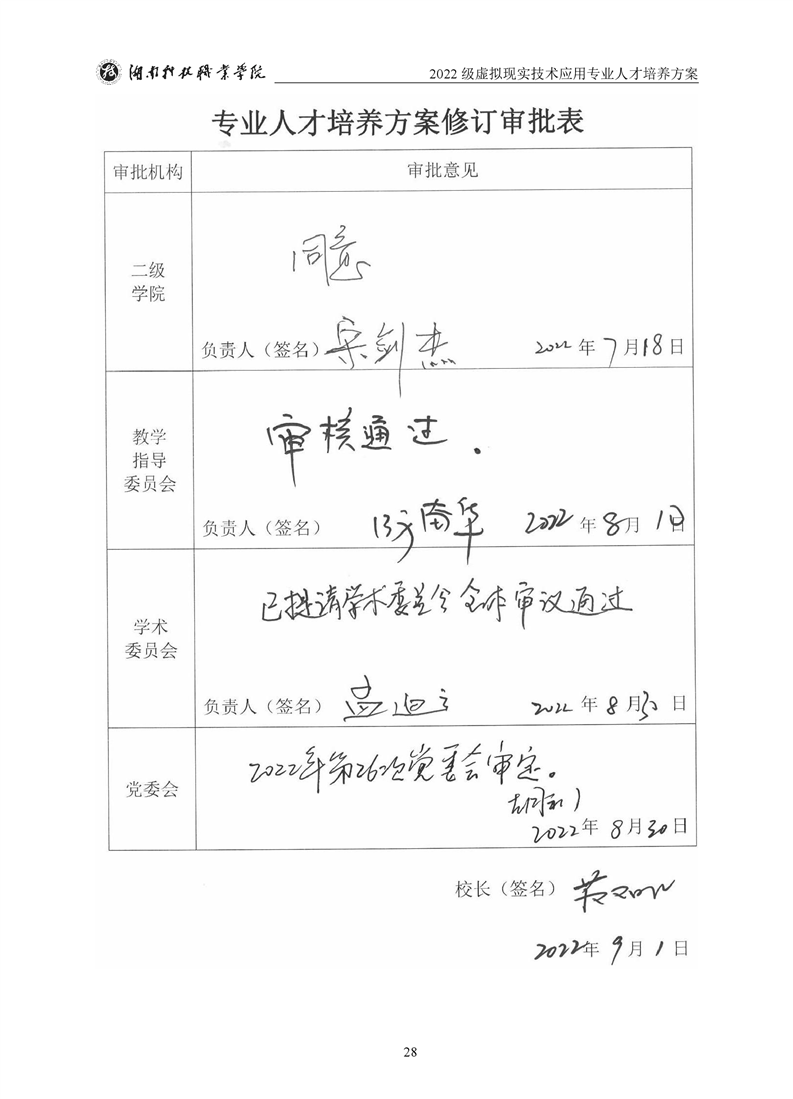 湖南科技职业学院
2022 级虚拟现实技术应用专业人才培养方案
专业人才培养方案修订审批表
审批机构 审批意见
二级
学院
同意
负责人（签名）宋剑杰 2022 年 7 月 18 日
教学
指导
委员会
审核通过。
负责人（签名） 南华 2022 年 8 月 1 日
学术
委员会
已提请学术委员会全体审议通过
负责人（签名） 孟迪云 2022 年 8 月 30 日
党委会
2022年第26次党委会审定。
2022 年 8 月 30 日
校长（签名）
2022 年 9 月 1 日
28